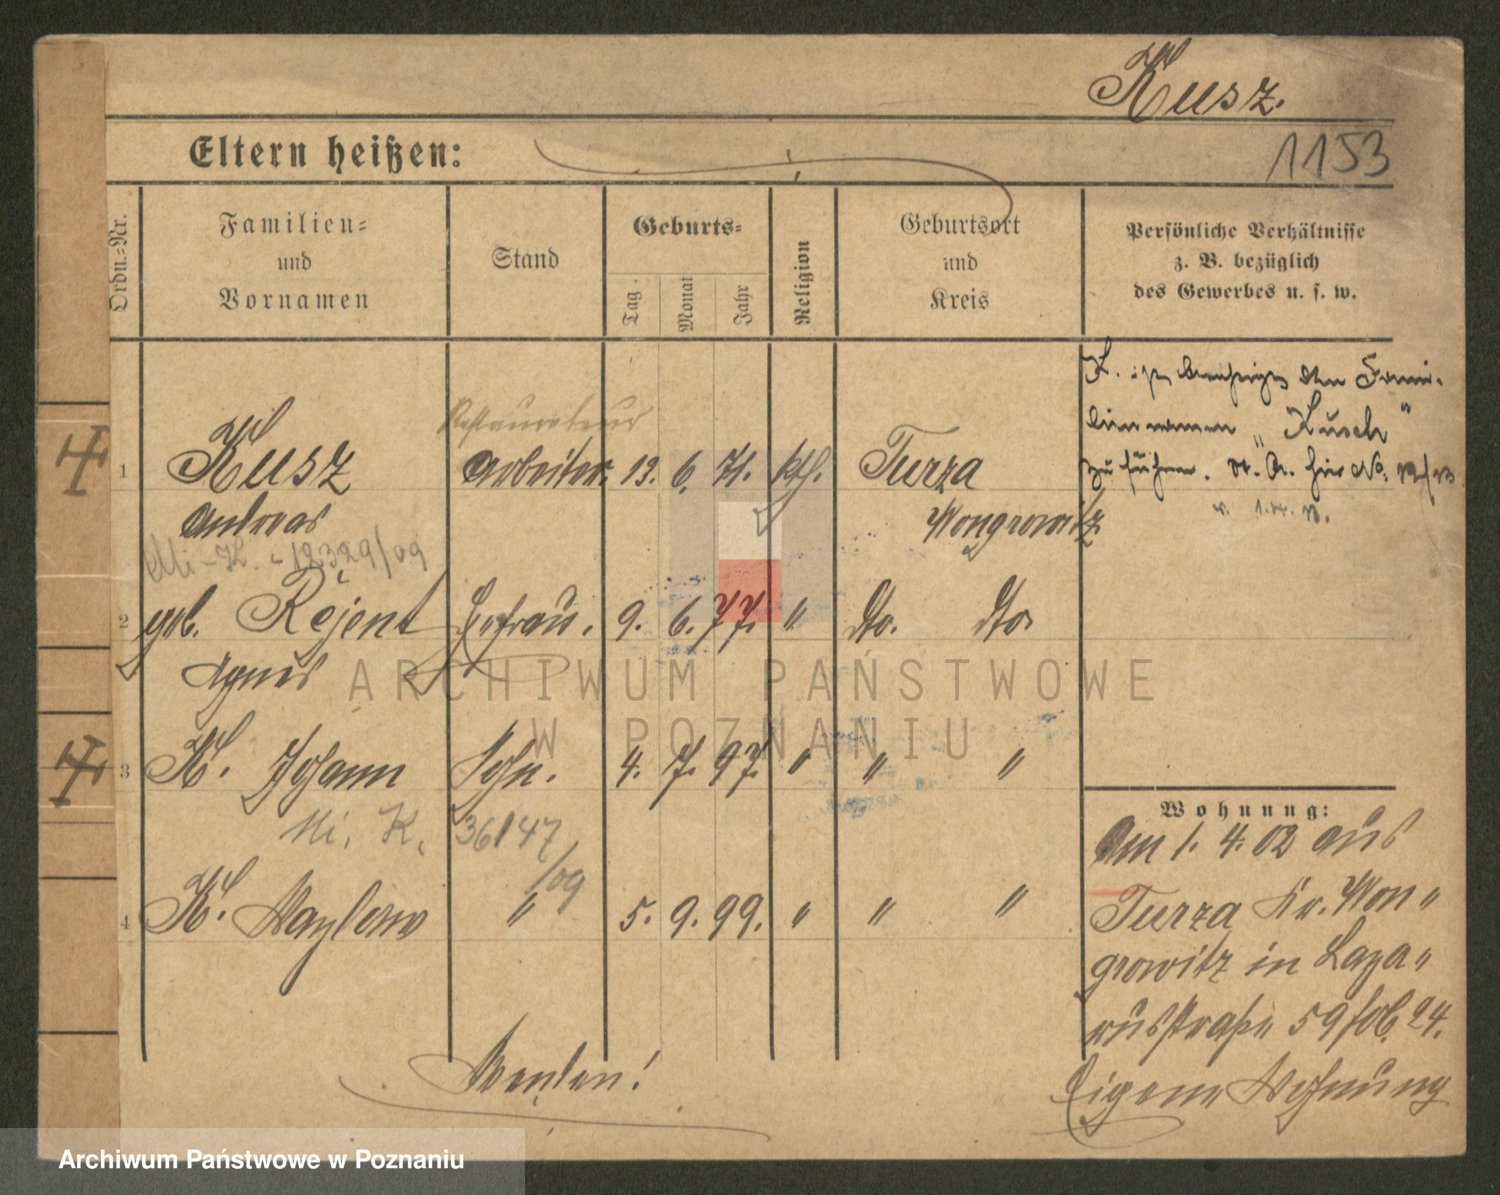 Kusz.
1153
Eltern heißen:
Ordn.-Nr.
Familien-
und
Vornamen
Stand
Geburts-
Tag.
Monat
Jahr
Religion
Geburtsort
und
Kreis
Persönliche Verhältnisse
z. B. bezüglich
des Gewerbes u. s. w.
K. ist berechtigt den Fami-
liennamen „Kusch"
zu führen.
Restaurateur
1 Kusz Arbeiter. 13. 6. 71. kth. Turza
Andreas Wongrowitz
Mi-K. 12329/09
2 geb. Rejent Ehefrau. 9. 6. 77. " dto. dto.
Agnes
3 K. Johann Sohn. 4. 7. 97. " " "
Mi. K. 36147
/09
4 K. " 5. 9. 99. " " "
Wohnung:
Am 1. 4. 02 aus
Turza Kr. Won"
growitz in Laza"
russtraße 59 24.
Eigene Wohnung
ARCHIWUM PAŃSTWOWE
W POZNANIU
Archiwum Państwowe w Poznaniu